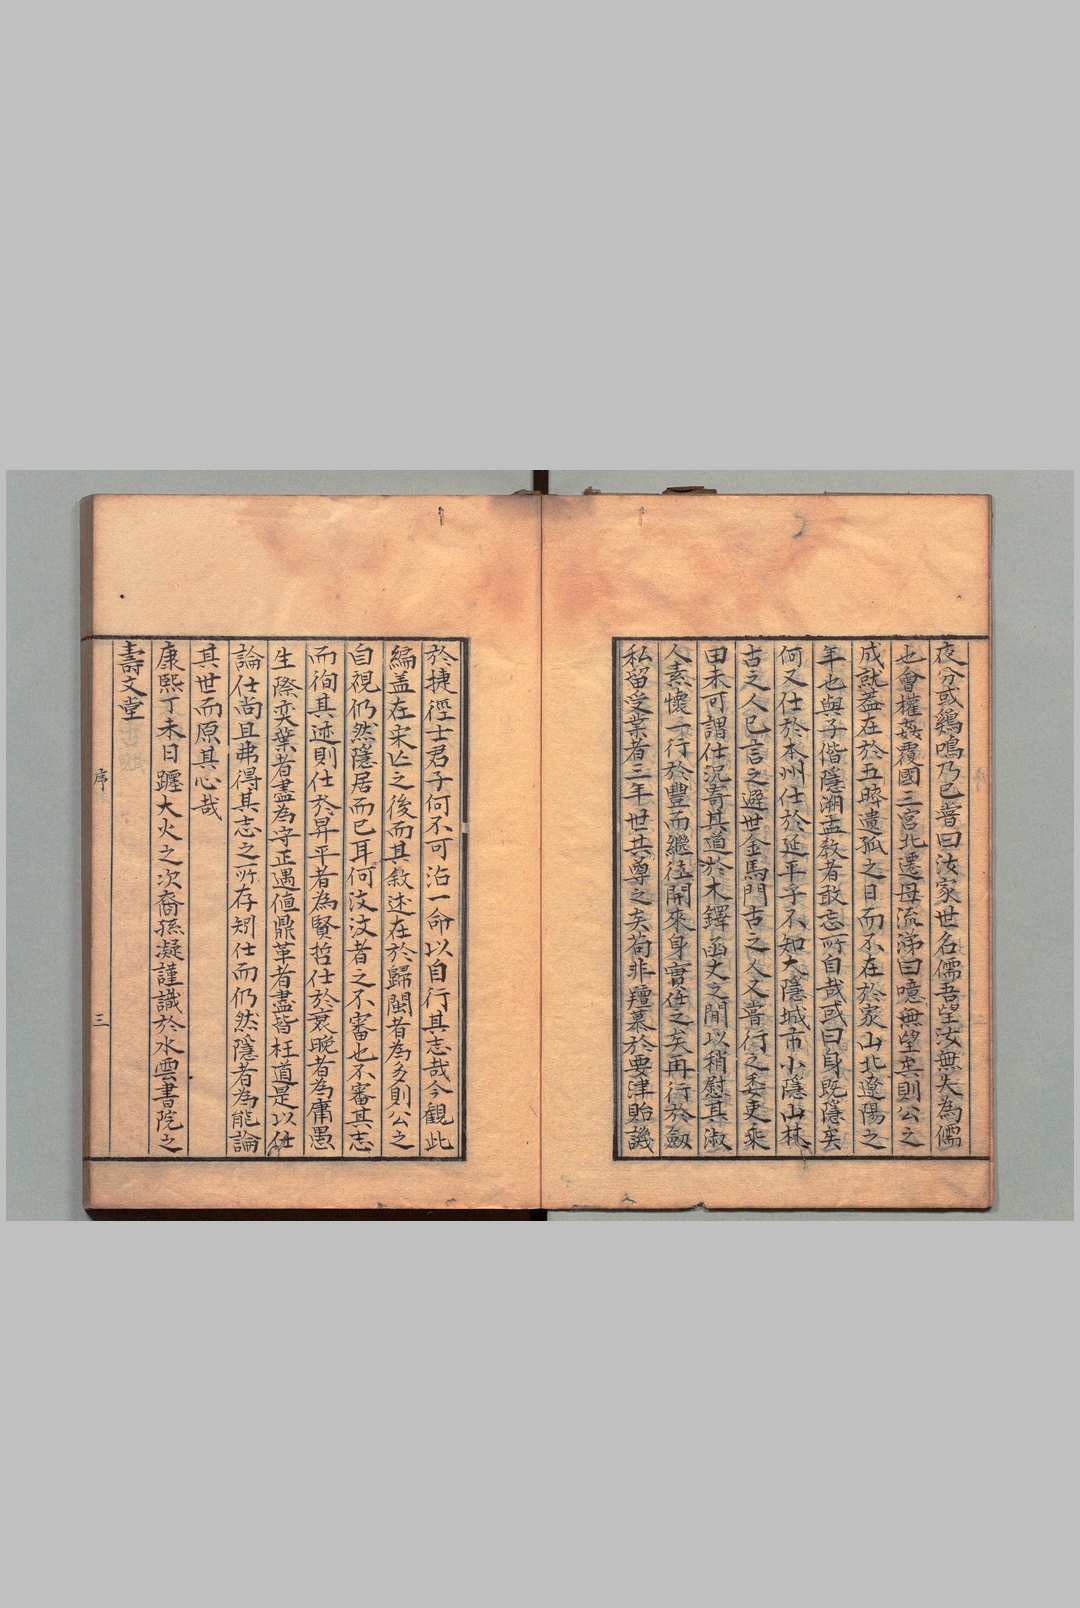 夜分或鷄鳴乃已嘗曰汝家世名儒吾望汝無失為儒
也會權姦覆國三宮北遷母流涕曰噫無望矣則公之
成就蓋在於五時遺孤之日而不在於家山北遼陽之
年也與子偕隱潮盂敎者敢忘所自哉或曰身既隱矣
何又仕於本州仕於延平子不知大隱城市小隱山林
古之人已言之避世金馬門古之人又嘗行之委吏乘
田未可謂仕況寄其道於木鐸函丈之間以稍慰其淑
人素懷一行於豐而繼往開來身實任之矣再行於劔
私留受業者三年世共尊之矣茍非羶慕於要津貽譏
於捷徑士君子何不可沾一命以自行其志哉今觀此
編盖在宋亾之後而其敘述在於歸閩者為多則公之
自視仍然隱居而已耳何汶汶者之不審也不審其志
而徇其迹則仕於昇平者為賢哲仕於衰晚者為庸愚
生際奕葉者盡為守正遇值鼎革者盡皆枉道是以仕
論仕尚且弗得其志之所存矧仕而仍然隱者為能論
其世而原其心哉
康熙丁未日躔大火之次裔孫凝謹識於水雲書院之
壽文堂
序
三